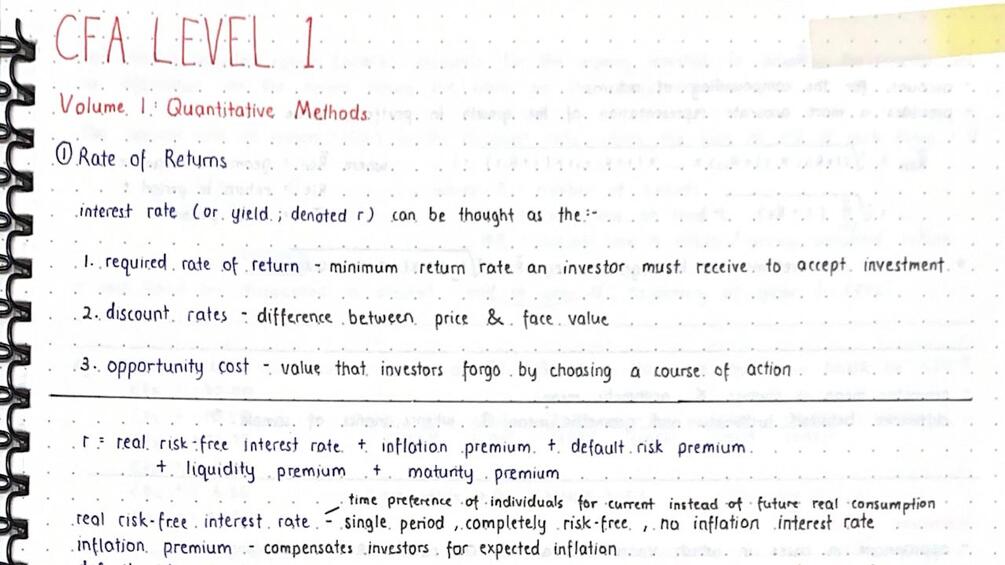 CFA LEVEL 1
Volume 1: Quantitative Methods
① Rate of Returns
interest rate (or yield ; denoted r) can be thought as the:-
1. required rate of return - minimum return rate an investor must receive to accept investment
2. discount rates - difference between price & face value
3. opportunity cost - value that investors forgo by choosing a course of action
r = real risk-free interest rate + inflation premium + default risk premium
+ liquidity premium + maturity premium
time preference of individuals for current instead of future real consumption
real risk-free interest rate - single period, completely risk-free, no inflation interest rate
inflation premium - compensates investors for expected inflation